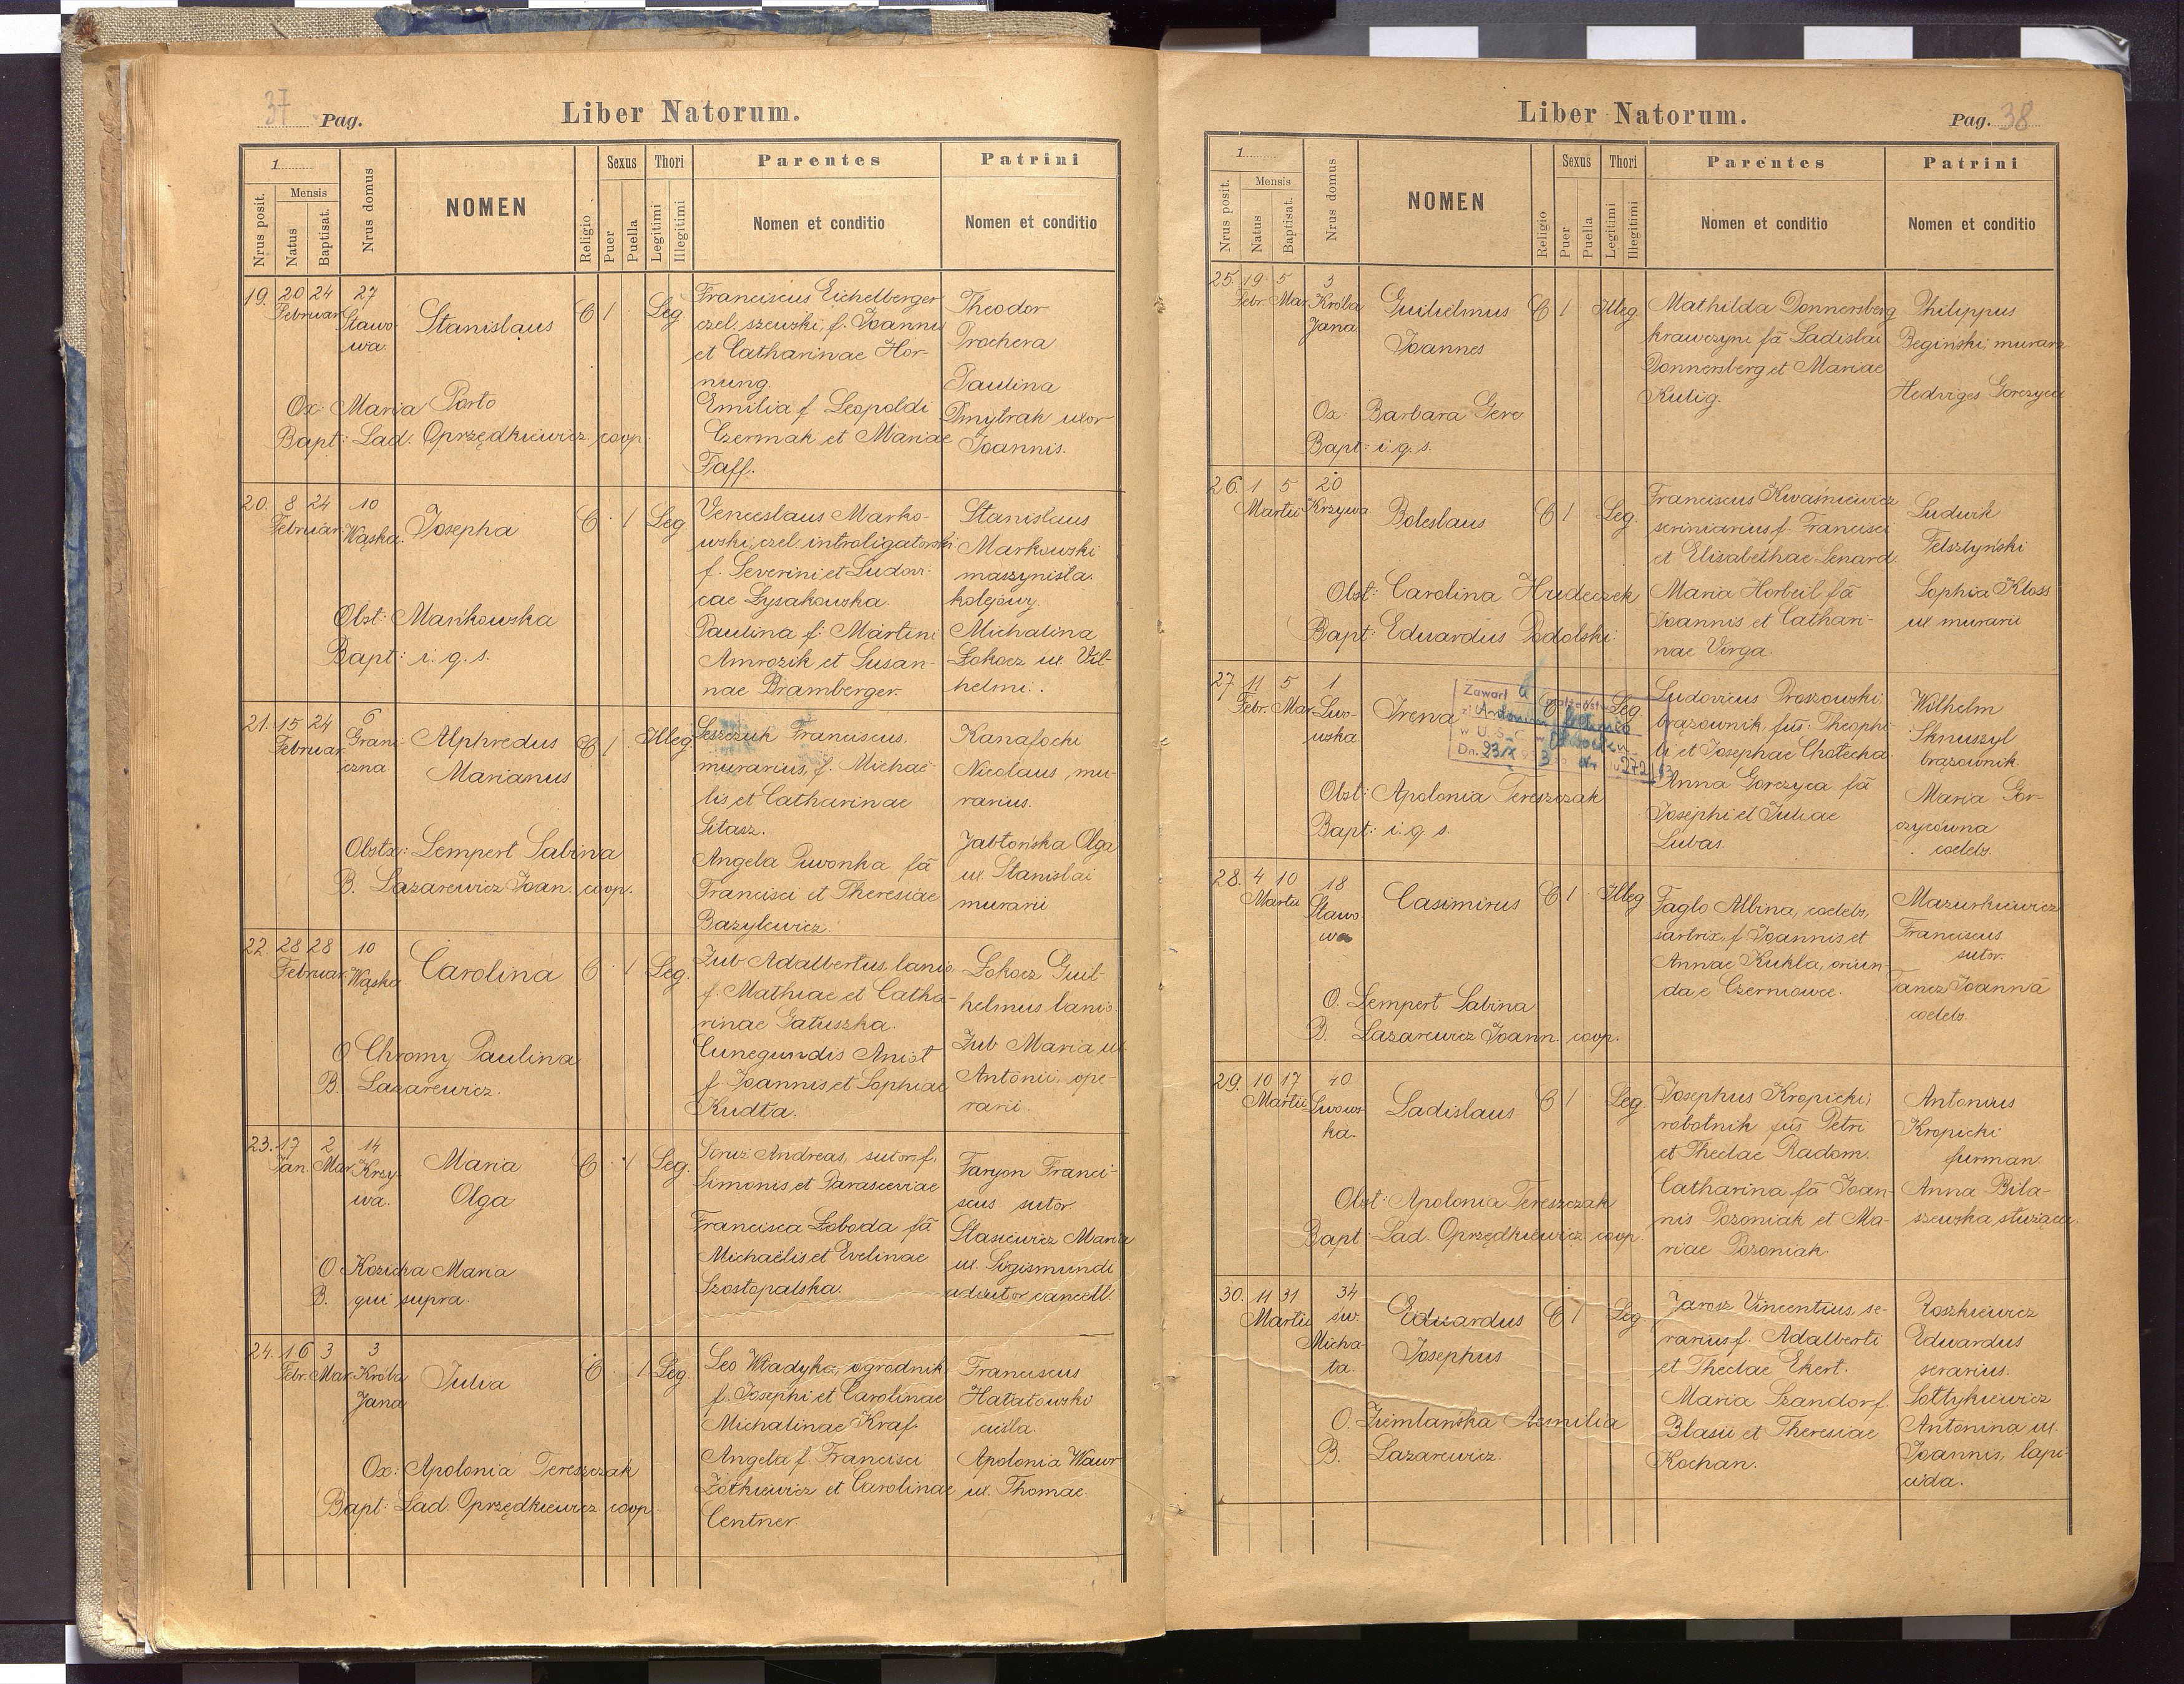 37 Pag.
Liber Natorum.
1
Nrus posit.
Mensis
Natus
Baptisat.
Nrus domus
NOMEN
Religio
Sexus
Puer
Puella
Thori
Legitimi
Illegitimi
Parentes
Nomen et conditio
Patrini
Nomen et conditio
19. 20 24 27
Februar Stawo-
wa.
Stanislaus
C 1 Leg
Ox: Maria Porto
Bapt: Lad. Oprzędkiewicz coop.
Franciscus Eichelberger
czel. szewski, f. Joannis
et Catharinae Hor-
nung.
Emilia f. Leopoldi
Czermak et Mariae
Faff.
Theodor
Prochera
Paulina
Dmytrak uxor
Joannis.
20. 8 24 10
Februar. Wąska.
Josepha
C 1 Leg.
Obst: Mańkowska
Bapt: i. q. s.
Venceslaus Marko-
wski, czel. introligatorski
f. Severini et Ludovi-
cae Łysakowska.
Paulina f. Martini
Amrozik et Susan-
nae Bramberger.
Stanislaus
Markowski
maszynista
kolejowy.
Michalina
Łokocz ux. Vil-
helmi.
21. 15 24 6
Februar. Grani-
czna.
Alphredus
Marianus
C 1 Illeg
Obstx: Lempert Sabina
B. Lazarewicz Joan. coop.
Leszczuk Franciscus.
murarius, f. Michaë-
lis et Catharinae
Sitasz.
Angela Piwonka fa
Francisci et Theresiae
Bazylewicz.
Kanafocki
Nicolaus, mu-
rarius.
Jabłońska Olga
ux. Stanislai
murarii
22. 28 28 10
Februar. Wąska.
Carolina
C 1 Leg.
O. Chromy Paulina
B. Lazarewicz.
Zub Adalbertus lanio
f. Mathiae et Catha-
rinae Gałuszka.
Cunegundis Anioł
f. Joannis et Sophiae
Kudła.
Łokocz Guil-
helmus lanio.
Zub Maria ux
Antonii, ope-
rarii.
23. 17 2 14
Jan. Mar. Krzy-
wa.
Maria
Olga
C 1 Leg.
O. Kozicka Maria
B. qui supra.
Andreas, sutor f.
Simonis et Parasceviae
Francisca Łoboda fa
Michaëlis et Evelinae
Szostopalska.
Faryon Franci-
scus sutor.
Stasiewicz Maria
ux. Sigismundi
adiutor cancell.
24. 16 3 3
Febr. Mar. Króla
Jana
Julia
C 1 Leg.
Ox: Apolonia Tereszczak
Bapt: Lad. Oprzędkiewicz coop.
Leo Władyka, ogrodnik
f. Josephi et Carolinae
Michalinae Kraf.
Angela f. Francisci
Żółkiewicz et Carolinae
Centner.
Franciscus
Hałatowski
cieśla.
Apolonia Wawr
ux. Thomae.
Liber Natorum.
Pag. 38
1
Nrus posit.
Mensis
Natus
Baptisat.
Nrus domus
NOMEN
Religio
Sexus
Puer
Puella
Thori
Legitimi
Illegitimi
Parentes
Nomen et conditio
Patrini
Nomen et conditio
25. 19 5 3
Febr. Mar. Króla
Jana
Guilielmus
Joannes
C 1 Illeg
Ox: Barbara Gere
Bapt: i. q. s.
Mathilda Donnersberg
krawczyni fa Ladislai
Donnersberg et Mariae
Kulig.
Philippus
Begiński, murarz
Hedviges Gorzyca
26. 1 5 20
Martii Krzywa
Boleslaus
C 1 Leg.
Obst: Carolina Hudeczek
Bapt: Eduardus Podolski
Franciscus Kwaśniewicz
scriniarius f. Francisci
et Elisabethae Lenard.
Maria Horbeil fa
Joannis et Cathari-
nae Virga.
Ludwik
Felsztyński
Sophia Kloss
ux murarii
27. 11 5 1
Febr. Mar. Lwo-
wska.
Irena
C 1 Leg.
Zawarł
w U. S. C. w
Dn.
Obst: Apolonia Tereszczak
Bapt: i. q. s.
Ludovicus Proszowski,
brązownik, fus. Theophi-
li et Josephae Chołecka.
Anna Gorczyca fa
Josephi et Juliae
Lubas.
Wilhelm
Sknuszyl
brązownik.
Maria Gor-
czycówna
coelebs.
28. 4 10 18
Martii Stawo-
wa
Casimirus
C 1 Illeg
O. Lempert Sabina
B. Lazarewicz Joann. coop.
Faglo Albina, coelebs,
sartrix, f. Joannis et
Annae Kukla, oriun-
dae Czerniowce.
Mazurkiewicz
Franciscus
sutor.
Tancz Joanna
coelebs.
29. 10 17 40
Martii Lwows-
ka.
Ladislaus
C 1 Leg.
Obst: Apolonia Tereszczak
Bapt: Lad. Oprzędkiewicz coop.
Josephus Kropicki,
robotnik fus Petri
et Theclae Radom.
Catharina fa Joan-
nis Pozoniak et Ma-
riae Pozoniak.
Antonius
Kropicki
furman.
Anna Bila-
szewska, służąca.
30. 11 31 34
Martii św.
Micha-
ła.
Eduardus
Josephus
C 1 Leg
O. Ziemlańska Aemilia
B. Lazarewicz.
Jarosz Vincentius, se-
rarius f. Adalberti
et Theclae Ekert.
Maria Szandor f.
Blasii et Theresiae
Kochan.
Roszkiewicz
Eduardus
serarius.
Sołtykiewicz
Antonina ux.
Joannis, lapi-
cida.